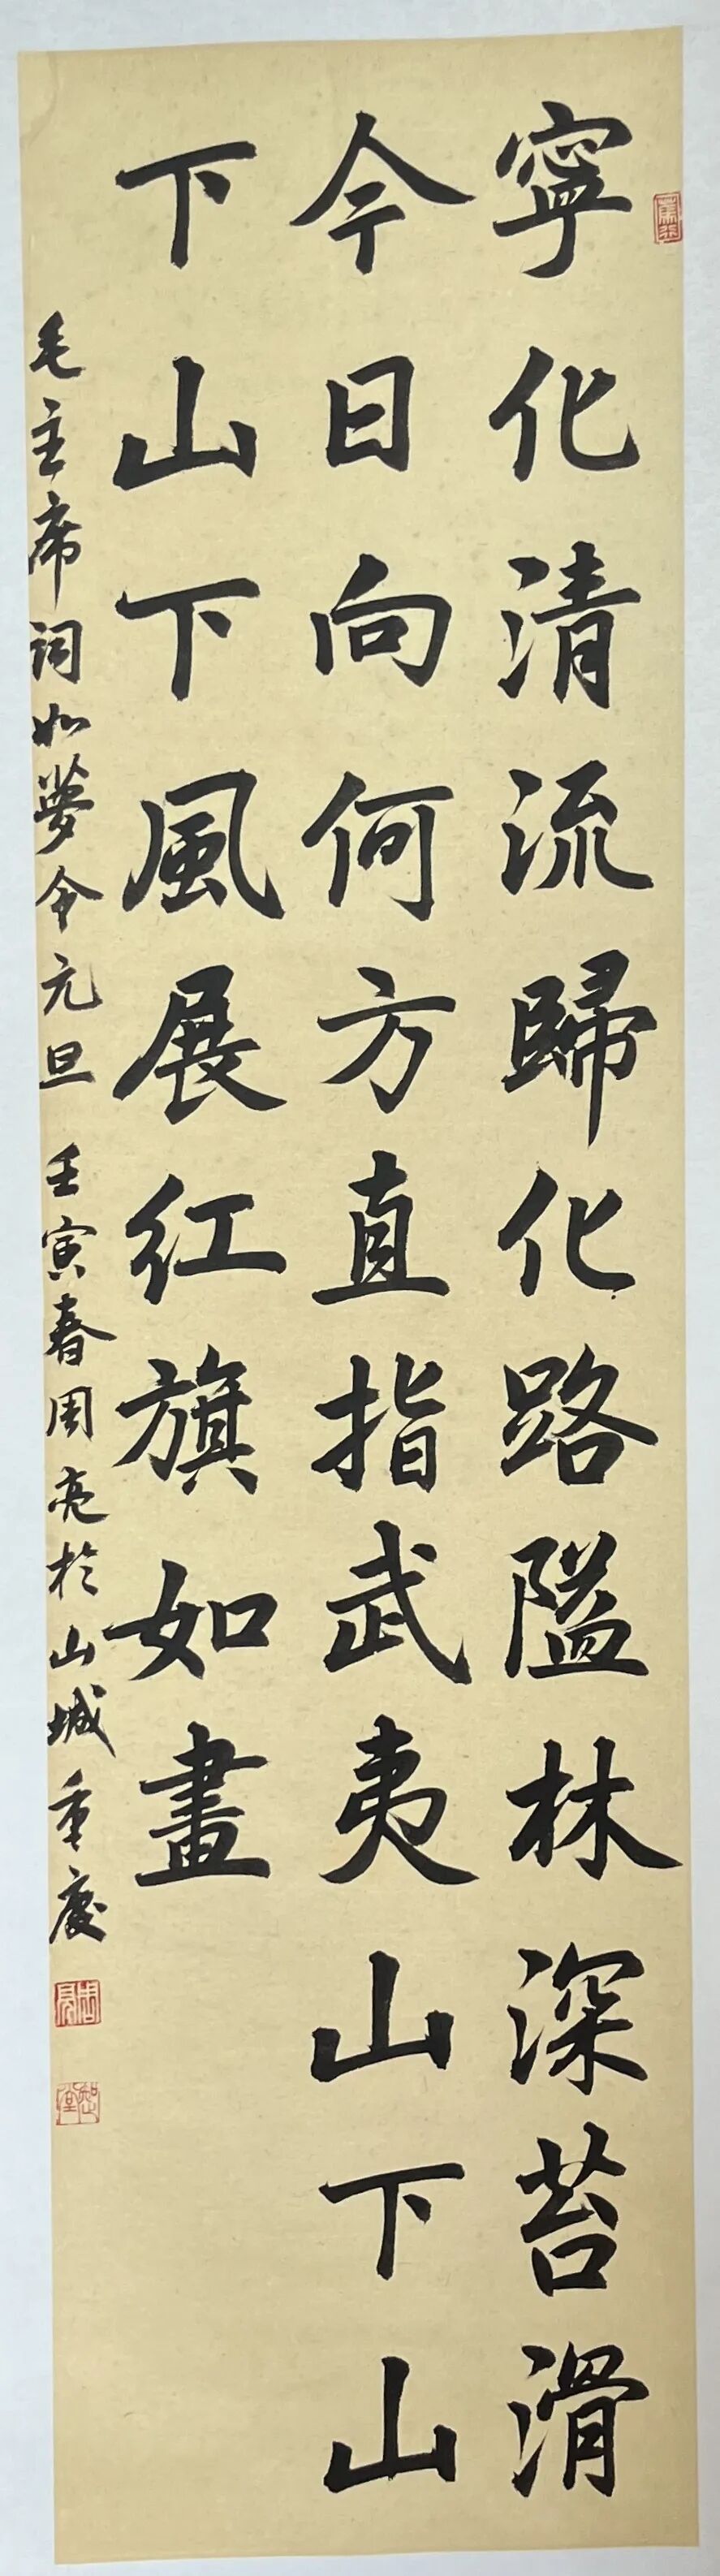 寧化清流歸化路隘林深苔滑
今日向何方直指武夷山下山
下山下風展红旗如畫
毛主席词如夢令元旦 壬寅春周亮於山城重慶
周亮